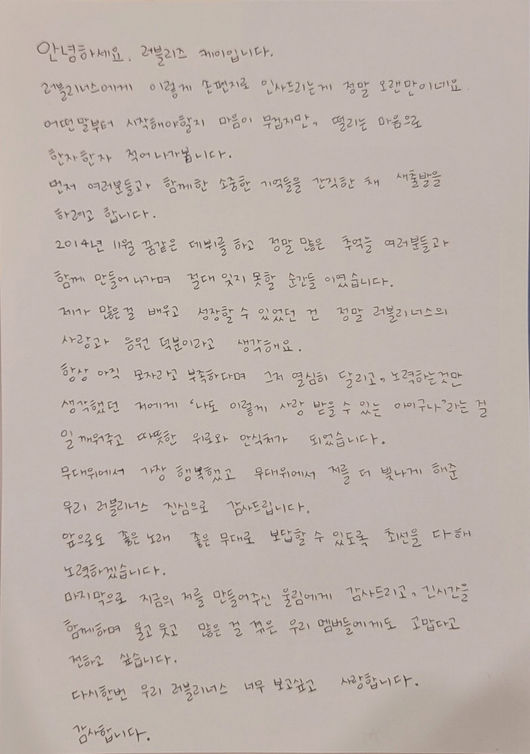 안녕하세요. 러블리즈 케이입니다.
러블리너스에게 이렇게 손편지로 인사드리는게 정말 오랜만이네요.
어떤말부터 시작해야할지 마음이 무겁지만, 떨리는 마음으로
한자한자 적어나가봅니다.
먼저 여러분들과 함께한 소중한 기억들을 간직한 채 새출발을
하려고 합니다.
2014년 11월 꿈같은 데뷔를 하고 정말 많은 추억을 여러분들과
함께 만들어나가며 절대 잊지 못할 순간들 이였습니다.
제가 많은걸 배우고 성장할 수 있었던 건 정말 러블리너스의
사랑과 응원 덕분이라고 생각해요.
항상 아직 모자라고 부족하다며 그저 열심히 달리고, 노력하는것만
생각했던 저에게 '나도 이렇게 사랑 받을 수 있는 아이구나'라는 걸
일깨워주고 따뜻한 위로와 안식처가 되었습니다.
무대위에서 가장 행복했고 무대위에서 저를 더 빛나게 해준
우리 러블리너스 진심으로 감사드립니다.
앞으로도 좋은노래 좋은 무대로 보답할 수 있도록 최선을 다해
노력하겠습니다.
마지막으로 지금의 저를 만들어주신 울림에게 감사드리고, 긴시간을
함께하며 울고 웃고 많은 걸 겪은 우리 멤버들에게도 고맙다고
전하고 싶습니다.
다시한번 우리 러블리너스 너무 보고싶고 사랑합니다.
감사합니다.